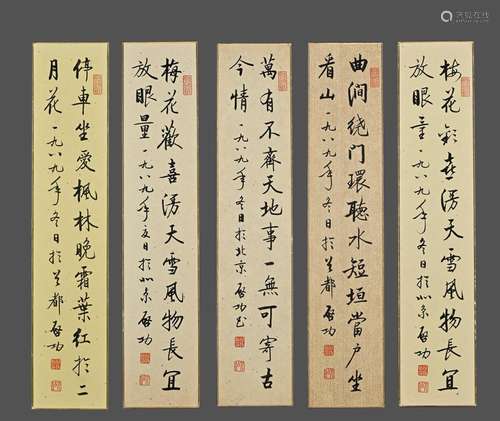 梅花歡喜漫天雪風物長宜
放眼量一九八九年冬日於北京啟功
曲澗绕门環聽水短垣當戶坐
看山一九八九年冬日於首都啟功
萬有不齊天地事一無可寄古
今情一九八九年冬日於北京啟功書
梅花歡喜漫天雪風物長宜
放眼量一九八九年夏日於北京啟功
停車坐愛楓林晚霜葉紅於二
月花一九八九年冬日於首都啟功